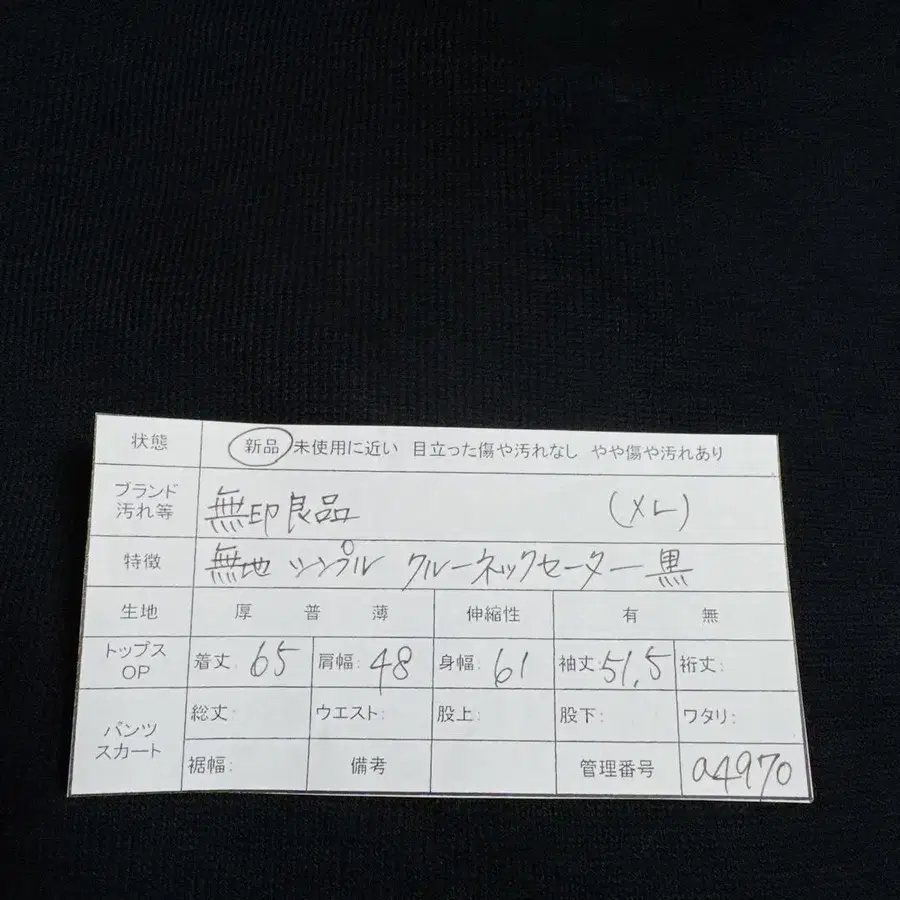 状態 新品 未使用に近い 目立った傷や汚れなし やや傷や汚れあり
ブランド
汚れ等
無印良品 (XL)
特徴 無地 シンプル クルーネックセーター 黒
生地 厚 普 薄 伸縮性 有 無
トップス
OP
着丈: 65 肩幅: 48 身幅: 61 袖丈: 51.5 裄丈:
パンツ
スカート
総丈: ウエスト: 股上: 股下: ワタリ:
裾幅: 備考 管理番号 a4970